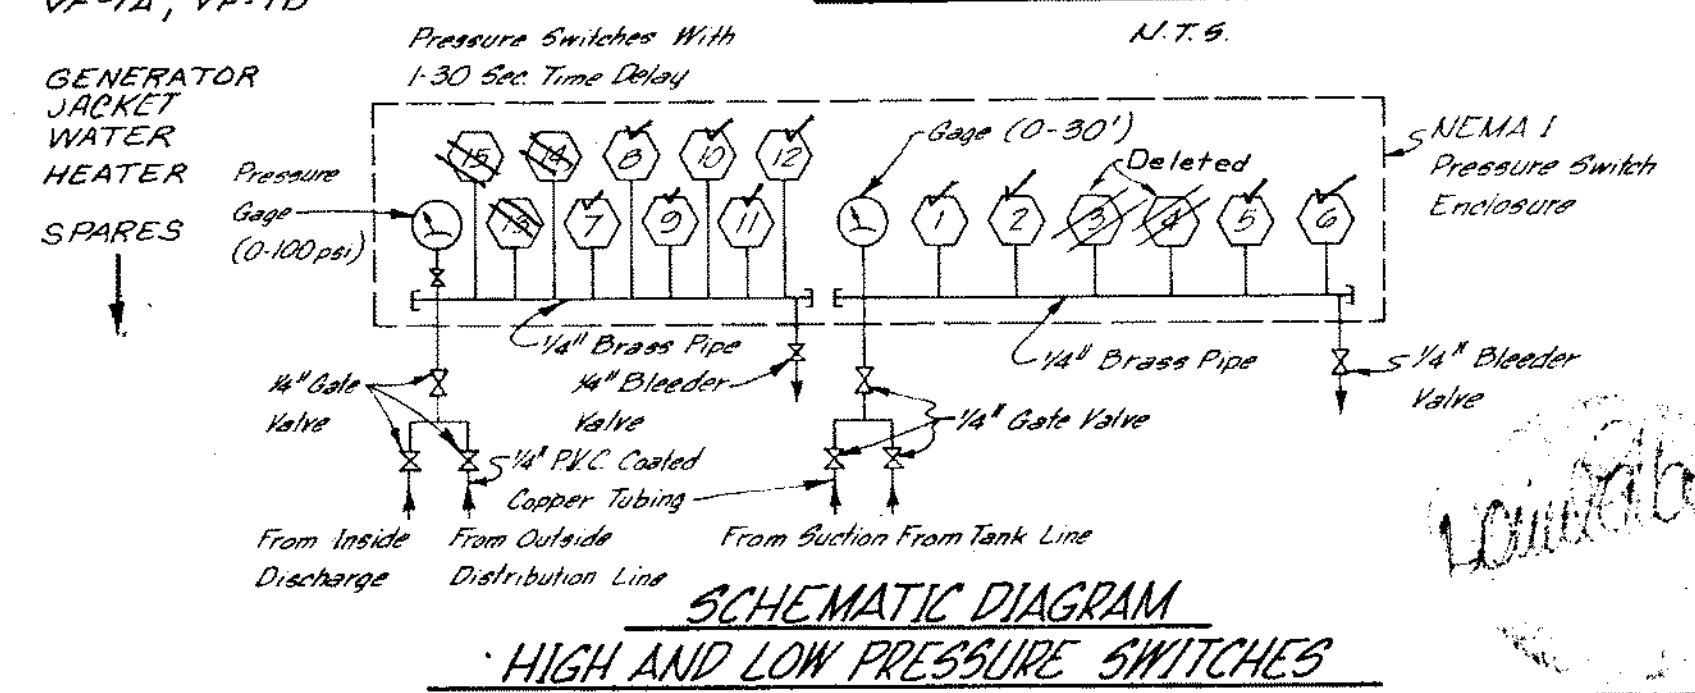 VF-1A, VF-1B
N.T.S.
Pressure Switches With
1-30 Sec. Time Delay
GENERATOR
JACKET
WATER
HEATER
SPARES
Pressure
Gage
(0-100 psi)
15
14
8
10
12
13
7
9
11
Gage (0-30')
Deleted
1
2
3
4
5
6
NEMA 1
Pressure Switch
Enclosure
1/4" Brass Pipe
1/4" Brass Pipe
1/4" Gate
Valve
1/4" Bleeder
Valve
1/4" Gate Valve
1/4" Bleeder
Valve
1/4" P.V.C. Coated
Copper Tubing
From Inside
Discharge
From Outside
Distribution Line
From Suction
From Tank Line
SCHEMATIC DIAGRAM
HIGH AND LOW PRESSURE SWITCHES